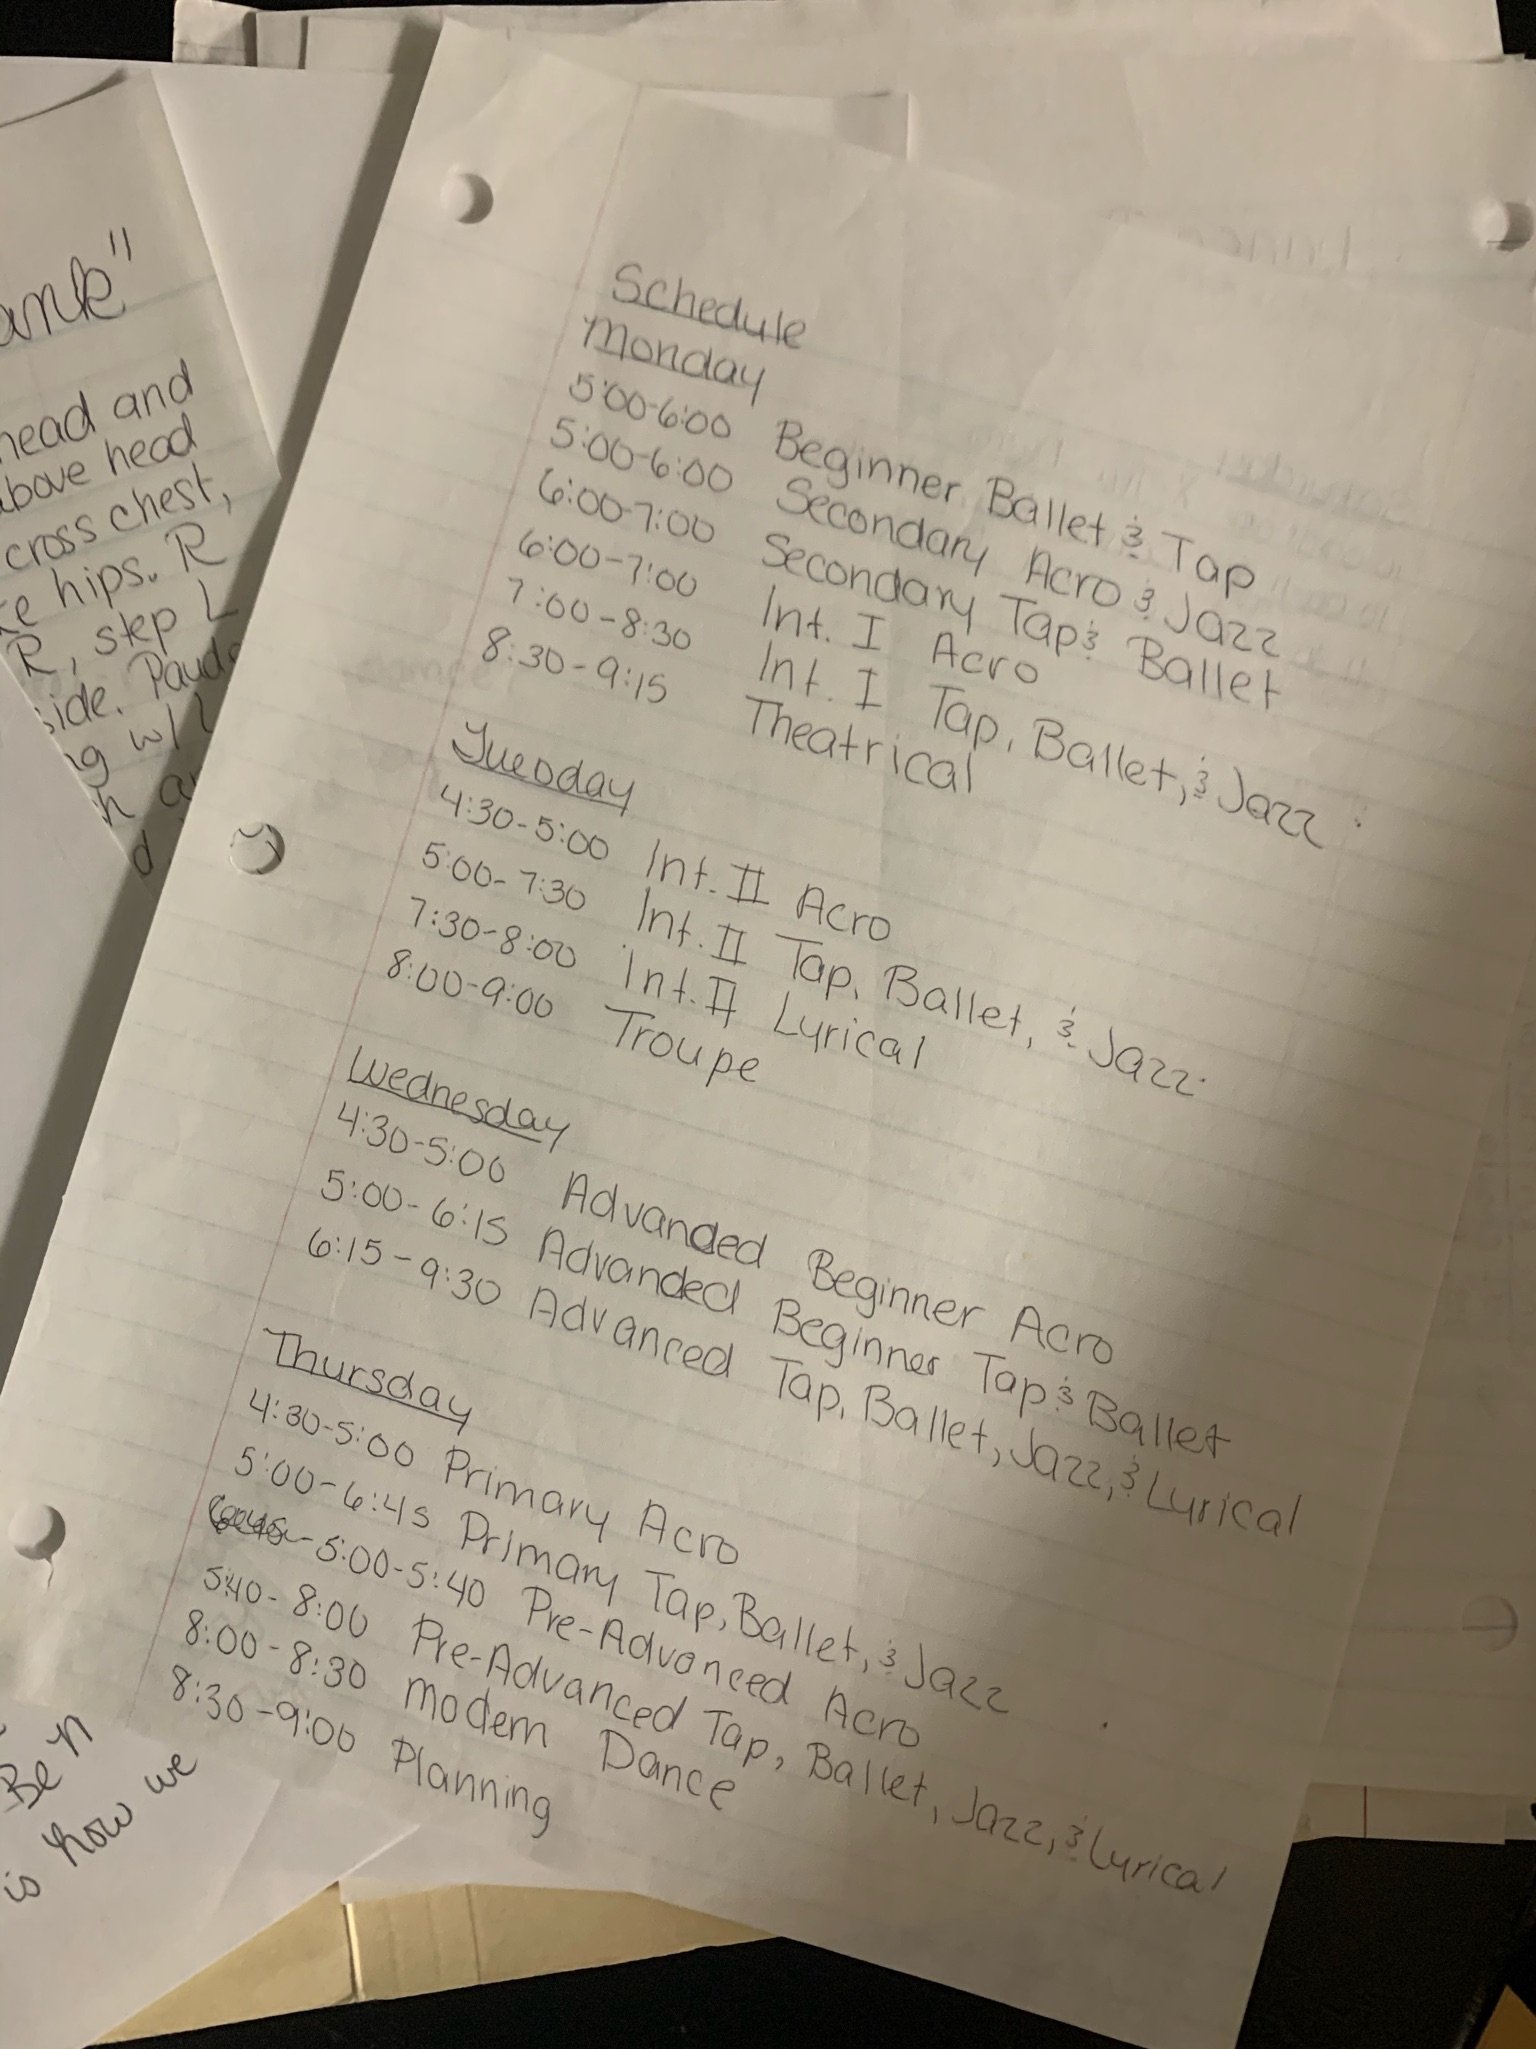 amle"
head and
above head
cross chest,
hips. R
R, step L
side.
w/
Be n
is how we
Schedule
Monday
5:00-6:00 Beginner Ballet & Tap
5:00-6:00 Secondary Acro & Jazz
6:00-7:00 Secondary Tap & Ballet
6:00-7:00 Int. I Acro
7:00-8:30 Int. I Tap, Ballet, & Jazz
8:30-9:15 Theatrical
Tuesday
4:30-5:00 Int. II Acro
5:00-7:30 Int. II Tap, Ballet, & Jazz
7:30-8:00 Int. II Lyrical
8:00-9:00 Troupe
Wednesday
4:30-5:00 Advanded Beginner Acro
5:00-6:15 Advanded Beginner Tap & Ballet
6:15-9:30 Advanced Tap, Ballet, Jazz, & Lyrical
Thursday
4:30-5:00 Primary Acro
5:00-6:45 Primary Tap, Ballet, & Jazz
5:00-5:40 Pre-Advanced Acro
5:40-8:00 Pre-Advanced Tap, Ballet, Jazz, & Lyrical
8:00-8:30 Modern Dance
8:30-9:00 Planning